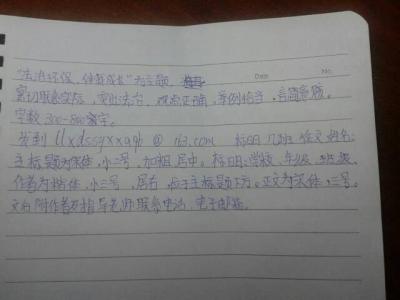 Date No.
"法治环保、伴我成长"为主题
紧切联系实际，突出法治，观点正确，举例恰当，言简意赅。
字数300-800字。
发到 llxdssyxxqgb@163.com 标明几班 作文 姓名；
主标题为宋体，小二号，加粗居中。标明：学校、年级、班级、
作者为楷体，小三号，居右，位于主标题下方。正文为宋体，三号。
文后附作者及指导老师联系电话、电子邮箱。